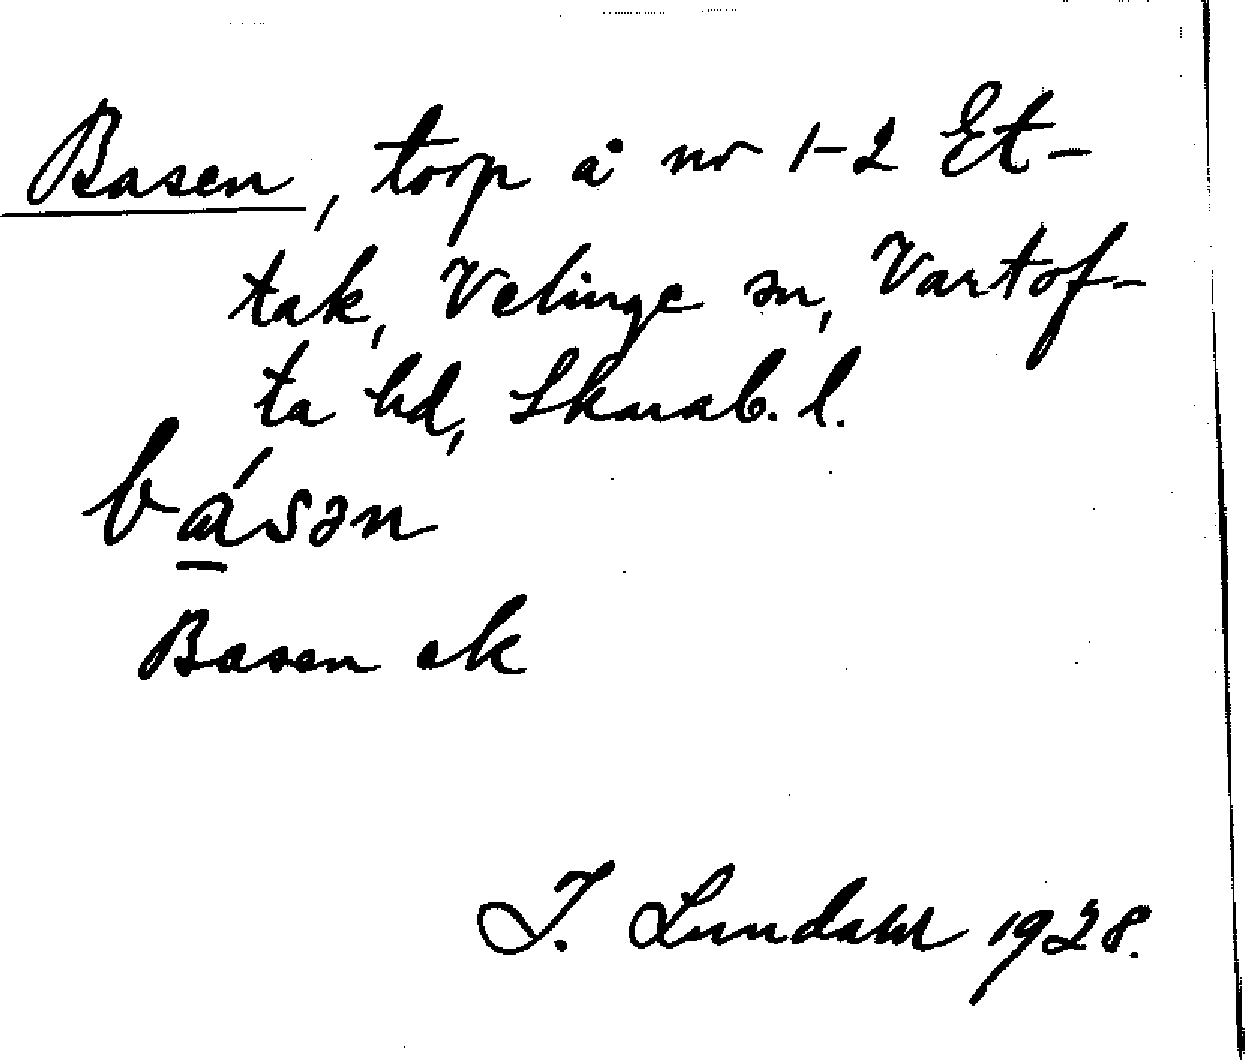 Basen, torp å nr 1-2 Et-
tak, Velinge sn, Vartof-
ta hd, Skarab. l.
bɑ́sən
Basen ek
I. Lundahl 1928.